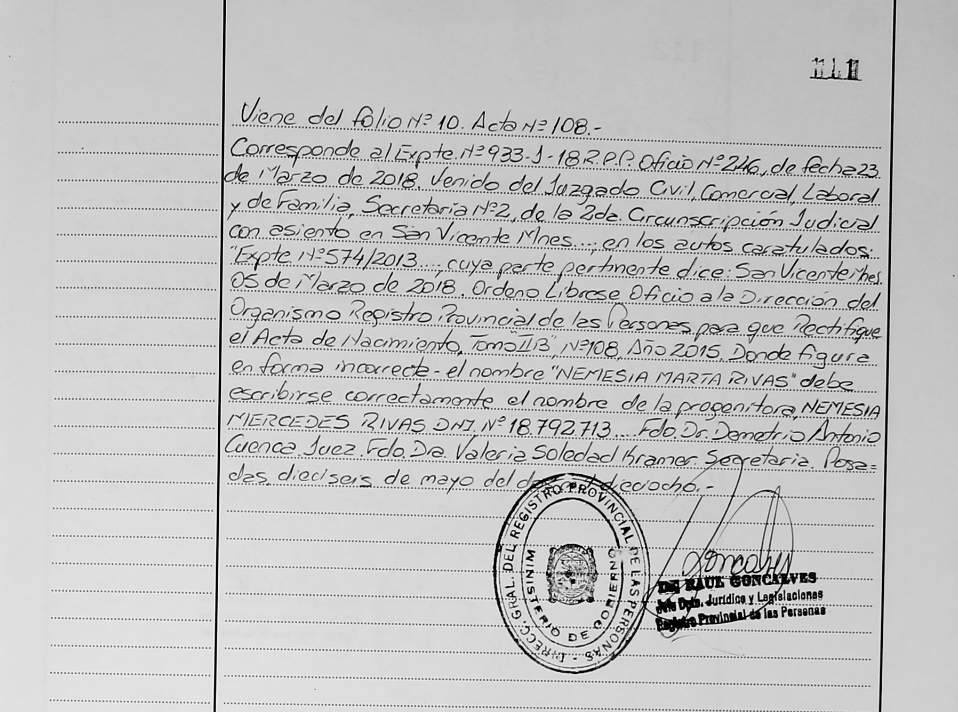 Viene del folio Nº 10. Acta Nº 108.-
Corresponde al Expte. Nº 933-J-18 R.P.P. Oficio Nº 246, de fecha 23
de Marzo de 2018. Venido del Juzgado Civil, Comercial, Laboral
y de Familia, Secretaria Nº 2, de la 2da. Circunscripción Judicial
con asiento en San Vicente Mnes..., en los autos caratulados:
"Expte Nº 574/2013..., cuya parte pertinente dice: San Vicente Mnes
05 de Marzo de 2018. Ordeno Librese Oficio a la Dirección del
Organismo Registro Provincial de las Personas para que Rectifique
el Acta de Nacimiento, Tomo II B, Nº 108, Año 2015. Donde figura
en forma incorrecta - el nombre "NEMESIA MARTA RIVAS" debe
escribirse correctamente el nombre de la progenitora, NEMESIA
MERCEDES RIVAS DNI. Nº 18.792.713... Fdo. Dr. Demetrio Antonio
Cuenca Juez. Fdo. Dra. Valeria Soledad Kramer. Secretaria. Posa=
das, dieciseis de mayo del dieciocho.-
DIRECC. GRAL. DEL REGISTRO PROVINCIAL DE LAS PERSONAS
MINISTERIO DE GOBIERNO
RAUL GONCALVES
Jefe Dpto. Jurídico y Legislaciones
Registro Provincial de las Personas